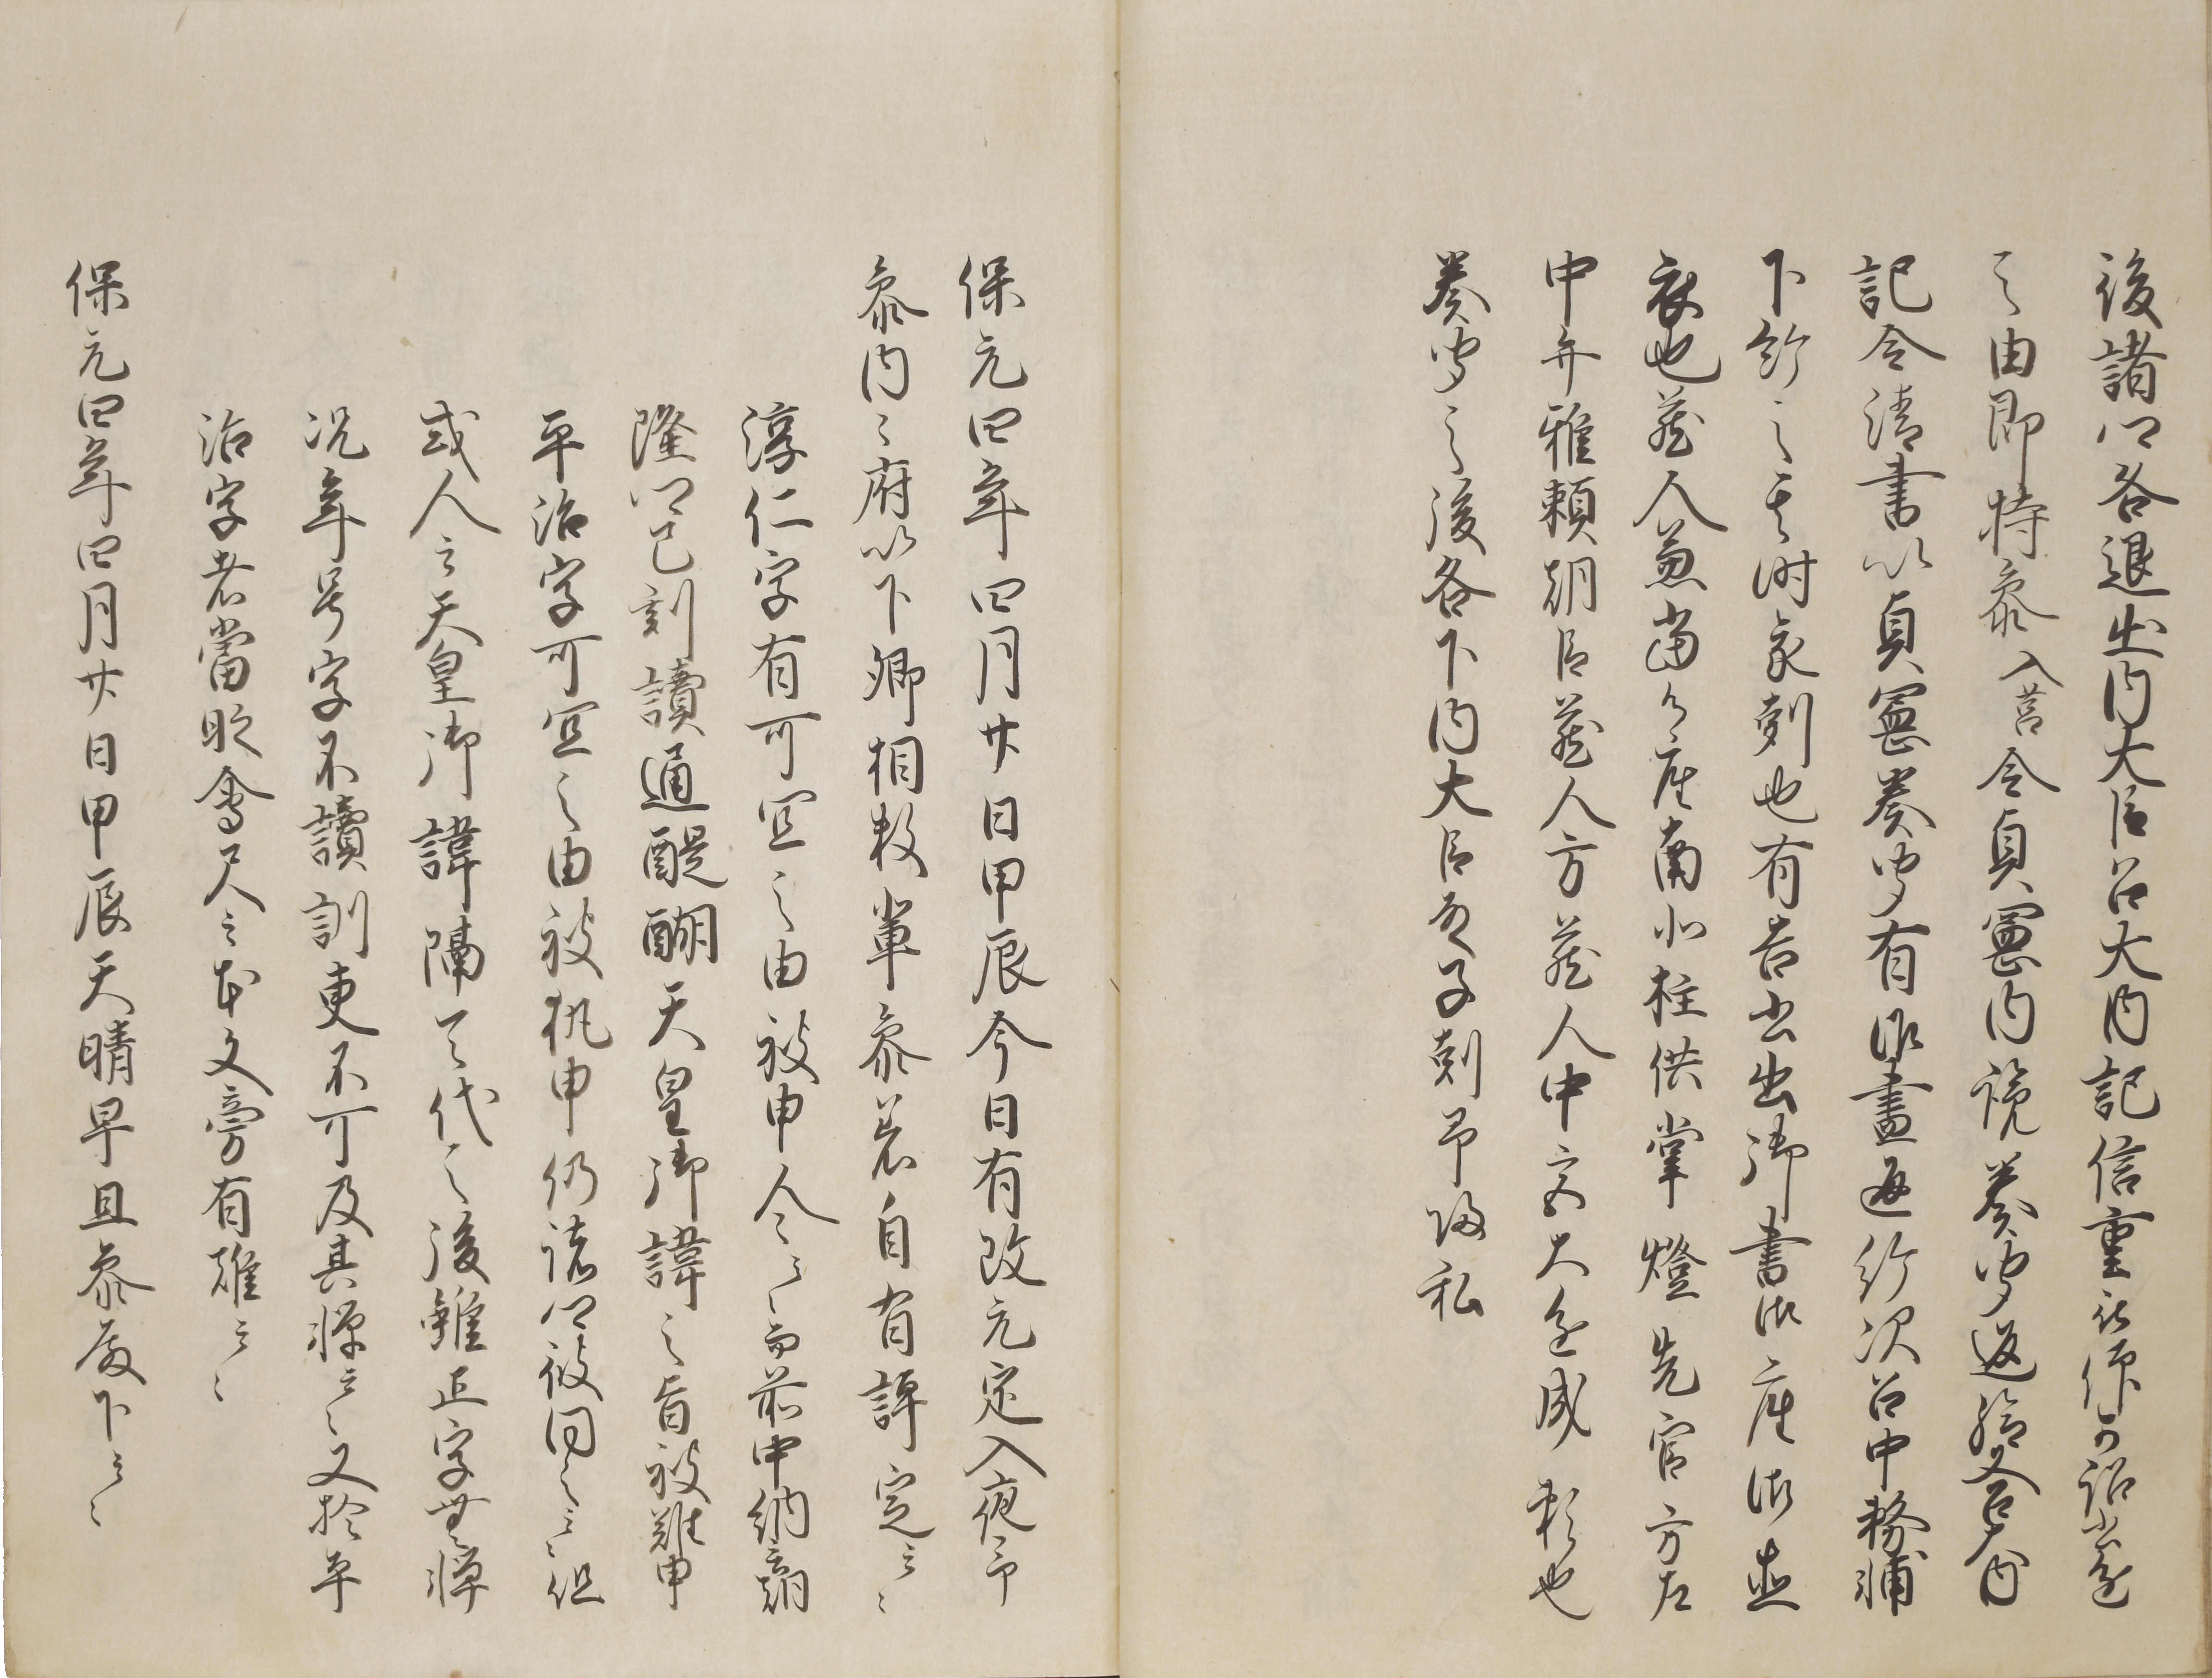 後諸卿各退出内大臣召大内記信重被仰可詔書進
之由即持参入筥令貞憲内覧奏聞返給又召大内
記令清書以貞憲奏聞有御畫返給次召中務輔
下給之于時亥剋也有吉書出御書御座御直
衣也蔵人兼当御座南北柱供掌燈先官方左
中弁雅頼朝臣蔵人方蔵人中宮大進成頼也
奏聞之後各下内大臣了子剋予帰私
保元四年四月廿日甲辰今日有改元定入夜予
参内々府以下卿相数輩参着自有評定云々
淳仁字有可宜之由被申人々而前中納言朝
隆卿已刻讀通醍醐天皇御諱之旨被難申
平治字可宜之由被執申仍諸卿被同之云々但
或人云天皇御諱隔一代之後雖正字無憚
況年号字不讀訓更不可及其憚云々又於平
治字者當眇會尺云本文旁有難云々
保元四年四月廿日甲辰天晴早旦参殿下云々